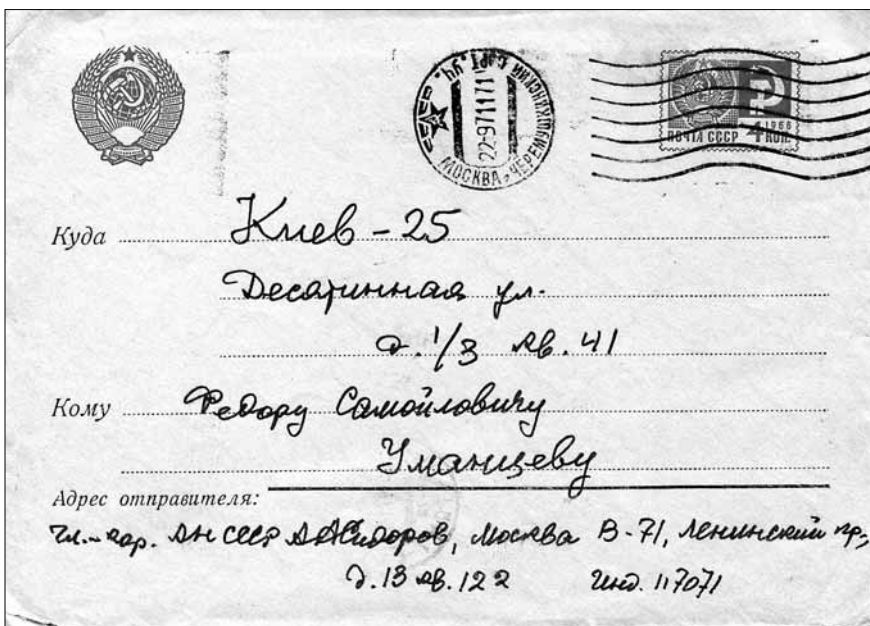 МОСКВА, ЧЕРЕМУШКИНСКИЙ СОРТ. УЧ.
1966
ПОЧТА СССР 4 КОП.
Куда Киев - 25
Десятинная ул.
д. 1/3 кв. 41
Кому Федору Самойловичу
Уманцеву
Адрес отправителя:
Чл.-кор. АН СССР А.А.Сидоров, Москва В-71, Ленинский пр.,
д. 13 кв. 122 Инд. 117071